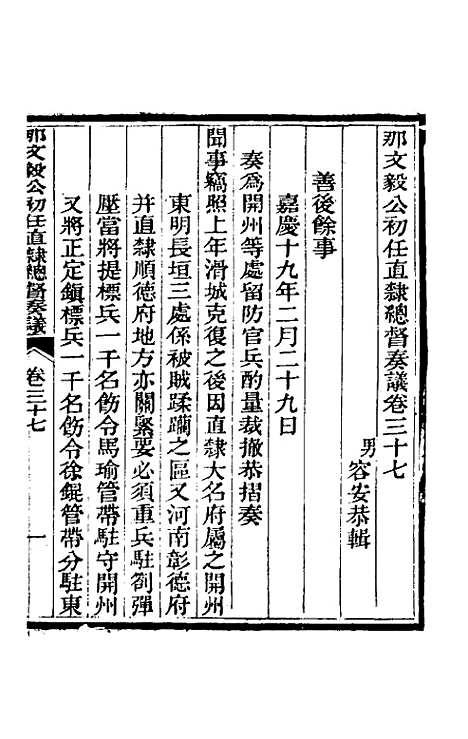 那文毅公初任直隸總督奏議卷三十七
男容安恭輯
善後餘事
嘉慶十九年二月二十九日
奏爲開州等處留防官兵酌量裁撤恭摺奏
聞事竊照上年滑城克復之後因直隸大名府屬之開州
東明長垣三處係被賊蹂躪之區又河南彰德府
并直隸順德府地方亦關緊要必須重兵駐劄彈
壓當將提標兵一千名飭令馬瑜管帶駐守開州
又將正定鎭標兵一千名飭令徐錕管帶分駐東
那文毅公初任直隸總督奏議 卷三十七 一